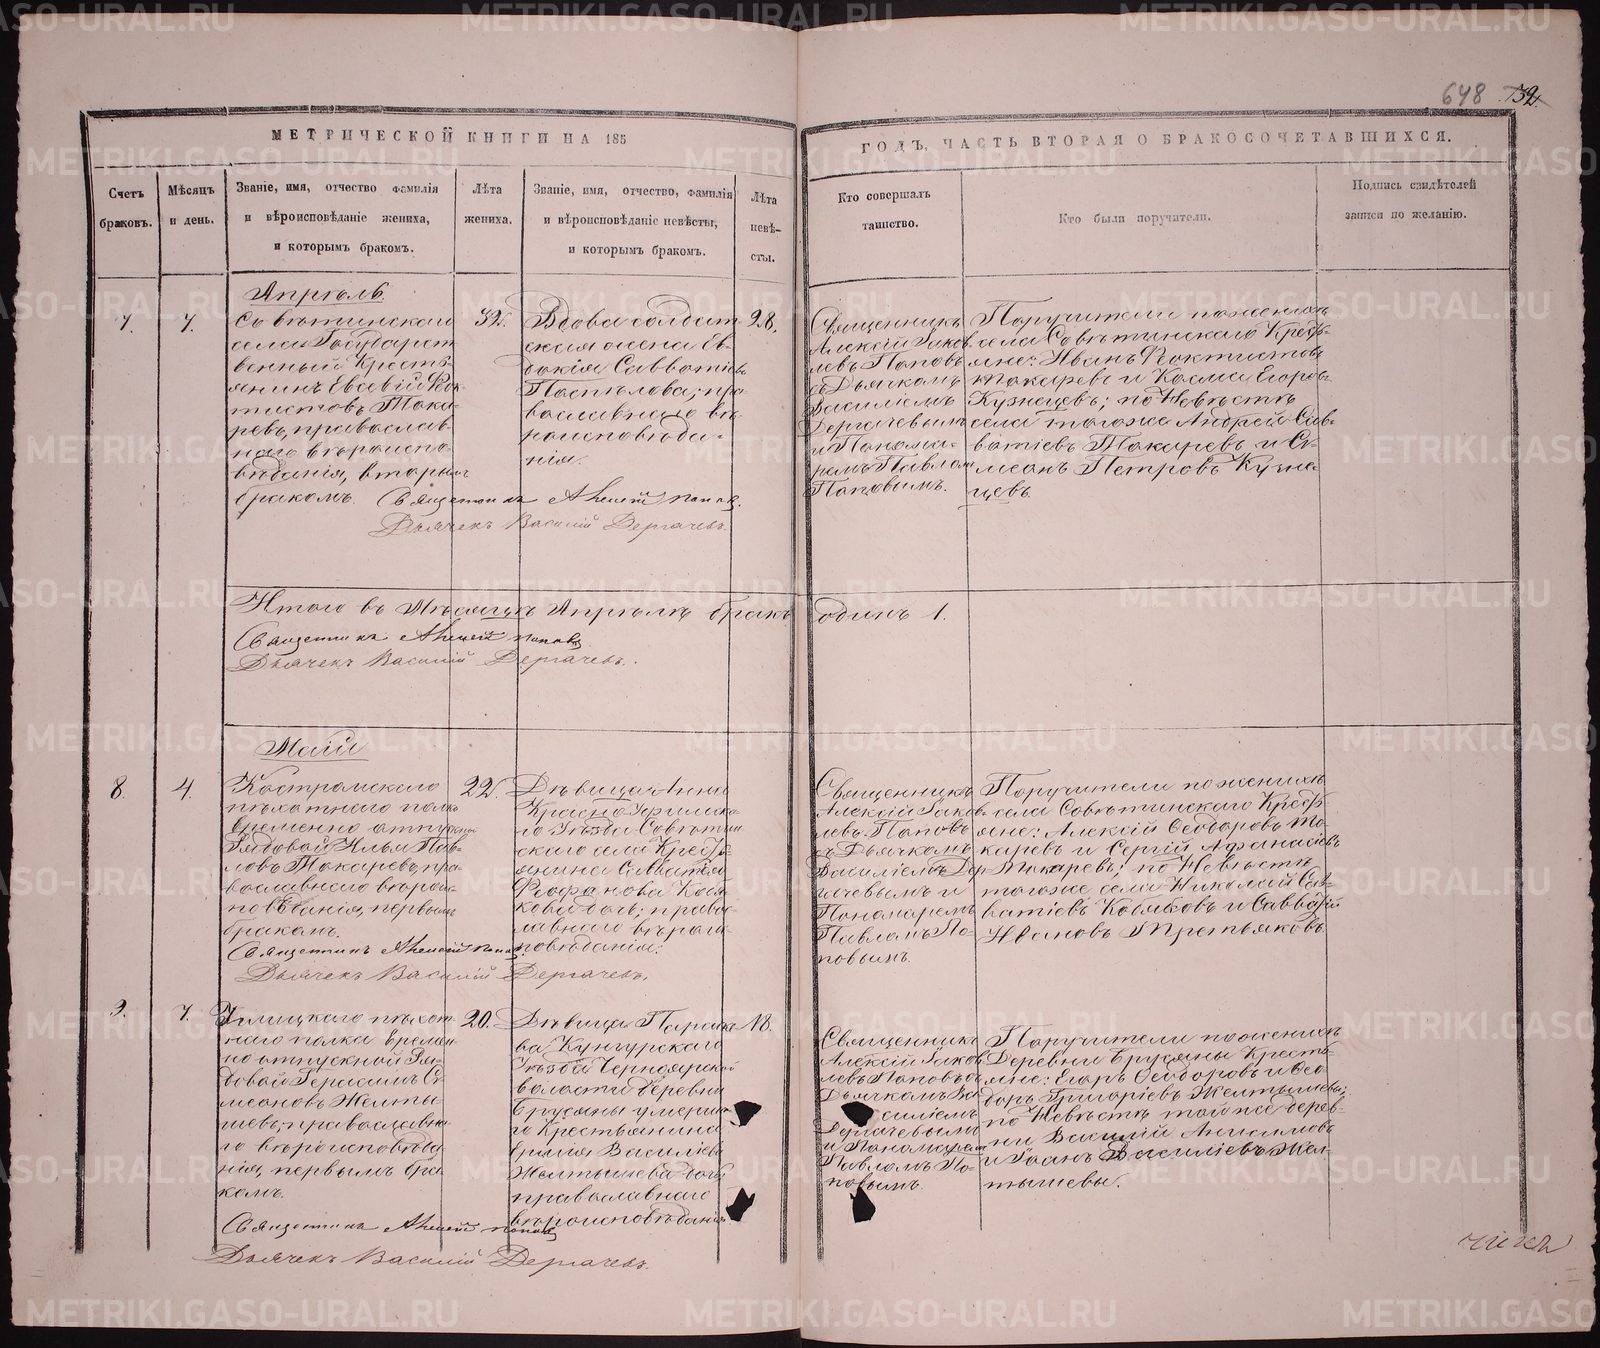 648 732.
МЕТРИЧЕСКОЙ КНИГИ НА 185
ГОДЪ, ЧАСТЬ ВТОРАЯ О БРАКОСОЧЕТАВШИХСЯ.
Счетъ браковъ.
Мѣсяцъ и день.
Званіе, имя, отчество фамилія
и вѣроисповѣданіе жениха,
и которымъ бракомъ.
Лѣта
жениха.
Званіе, имя, отчество, фамилія
и вѣроисповѣданіе невѣсты,
и которымъ бракомъ.
Лѣта
невѣ-
сты.
Кто совершалъ
таинство.
Кто были поручители.
Подпись свидѣтелей
записи по желанію.
Апрѣль.
7. 7.
Совѣтинскаго
села Государст
венный Кресть-
янинъ Евсевій Ѳеок-
тистовъ Тока-
ревъ, православ-
наго вѣроиспо-
вѣданія, вторымъ
бракомъ.
32.
Вдова солдат
ская жена Ев-
докія Савватіева
Поспѣлова; пра
вославнаго вѣ-
роисповѣда-
нія.
28.
Священникъ
Алексій Іаков-
левъ Поповъ
съ Дьячкомъ
Василіемъ
Дергачевымъ
и Понома-
ремъ Павломъ
Поповымъ.
Поручители по женихѣ
села Совѣтинскаго Кресть-
яне: Иванъ Ѳеоктистовъ
Токаревъ и Косма Егоровъ
Кузнецовъ; по Невѣстѣ
села тогоже Андрей Сав-
ватіевъ Токаревъ и Си-
меонъ Петровъ Кузне-
цовъ.
Священникъ Алексій Поповъ.
Дьячекъ Василій Дергачевъ.
Итого въ Мѣсяцѣ Апрѣлѣ бракъ одинъ 1.
Священникъ Алексій Поповъ
Дьячекъ Василій Дергачевъ.
Маій
8. 4.
Костромскаго
пѣхотнаго полка
временно отпускной
Рядовой Илья Пав-
ловъ Токаревъ, пра-
вославнаго вѣрои-
повѣданія, первымъ
бракомъ.
22.
Дѣвица Анна
Красноуфимска-
го Уѣзда Совѣтин
скаго села Кресть-
янина Савватія
Ѳеофанова Кося-
кова дочь; правос-
лавнаго вѣроис-
повѣданія.
Священникъ
Алексій Іаков-
левъ Поповъ
съ Дьячкомъ
Василіемъ Дер-
гачевымъ и
Пономаремъ
Павломъ По-
повымъ.
Поручители по женихѣ
села Совѣтинскаго Кресть-
яне: Алексій Ѳеодоровъ То-
каревъ и Сергій Аѳанасіевъ
Токаревъ; по Невѣстѣ
тогоже села Николай Сав-
ватіевъ Косяковъ и Савватій
Ивановъ Третьяковъ
Священникъ Алексій Поповъ.
Дьячекъ Василій Дергачевъ.
9. 7.
Углицкаго пѣхот-
наго полка времен
но отпускной Ря-
довой Герасимъ Си-
меоновъ Желты-
шевъ, православна-
го вѣроисповѣда-
нія, первымъ бра-
комъ.
20.
Дѣвица Параске-
ва Кунгурскаго
Уѣзда Черноярской
волости деревни
Брусяны умерша-
го Крестьянина
Василіева
Желтышева дочь
православнаго
вѣроисповѣданія.
18.
Священникъ
Алексій Іаков-
левъ Поповъ съ
Дьячкомъ Ва-
силіемъ
Дергачевымъ
и Пономаремъ
Павломъ По-
повымъ.
Поручители по женихѣ
Деревни Брусяны Кресть-
яне: Егоръ Ѳеодоровъ и Ѳео-
доръ Григоріевъ Желтышевы;
по Невѣстѣ той же дерев-
ни Василій Анисимовъ
и Іоанъ Василіевъ Жел-
тышевы.
Священникъ Алексій Поповъ
Дьячекъ Василій Дергачевъ.